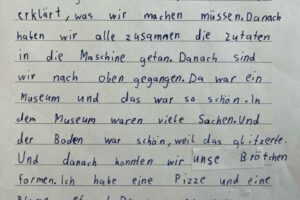 erklärt, was wir machen müssen. Danach
haben wir alle zusammen die zutaten
in die Maschine getan. Danach sind
wir nach oben gegangen. Da war ein
Museum und das war so schön. In
dem Museum waren viele Sachen. Und
der Boden war schön, weil das glitzerte.
Und danach konnten wir unse Brötchen
formen. Ich habe eine Pizze und eine